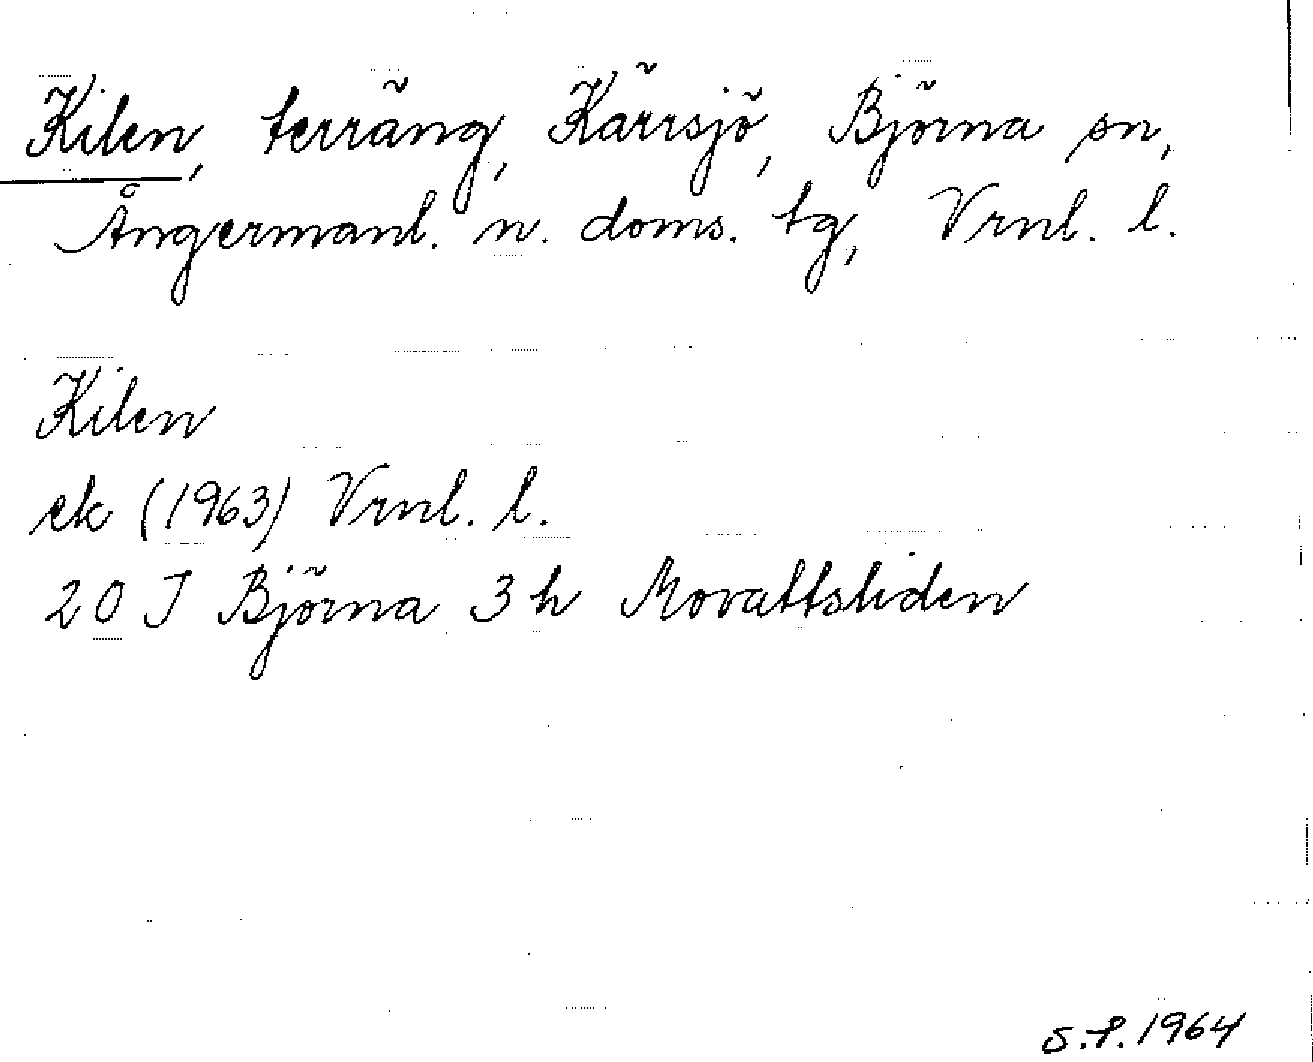 Kilen, terräng, Kärrsjö, Björna sn,
Ångermanl. n. doms. tg, Vrnl. l.
Kilen
ek (1963) Vrnl. l.
20 J Björna 3 h Movattsliden
S.P. 1964